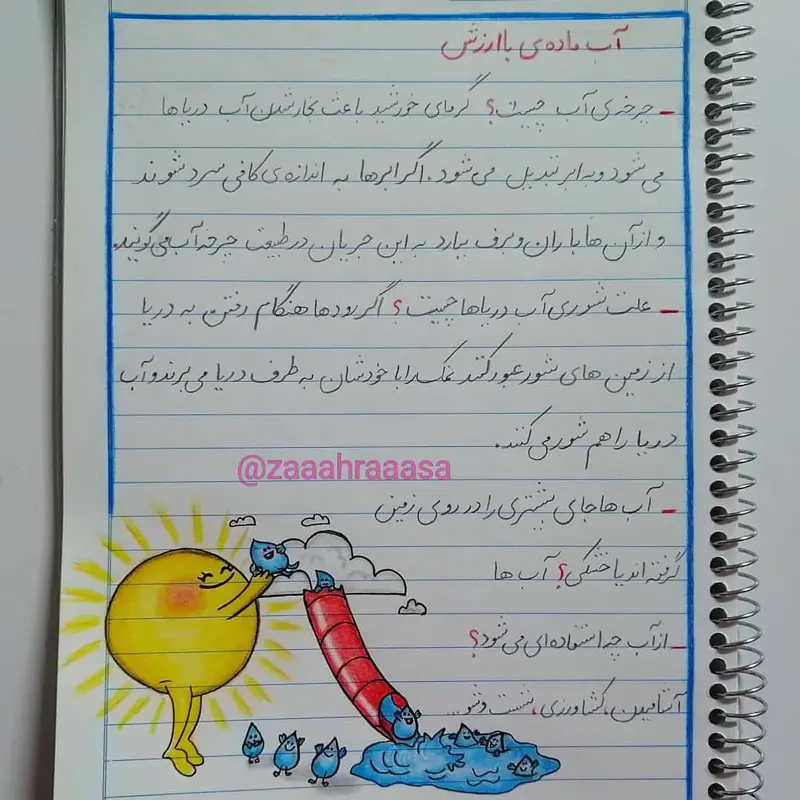 آب ماده‌ی باارزش
- چرخه‌ی آب چیست؟ گرمای خورشید باعث بخار شدن آب دریاها
می شود و به ابر تبدیل می شود. اگر ابرها به اندازه‌ی کافی سرد شوند
و از آن ها باران و برف ببارد به این جریان در طبیعت چرخه آب می گویند.
- علت شوری آب دریاها چیست؟ اگر رودها هنگام رفتن به دریا
از زمین های شور عبور کنند نمک را با خودشان به طرف دریا می برند و آب
دریا را هم شور می کنند.
@zaaahraaasa
- آب ها جای بیشتری را در روی زمین
گرفته اند یا خشکی؟ آب ها
- از آب چه استفاده ای می شود؟
آشامیدن، کشاورزی، شست و شو...